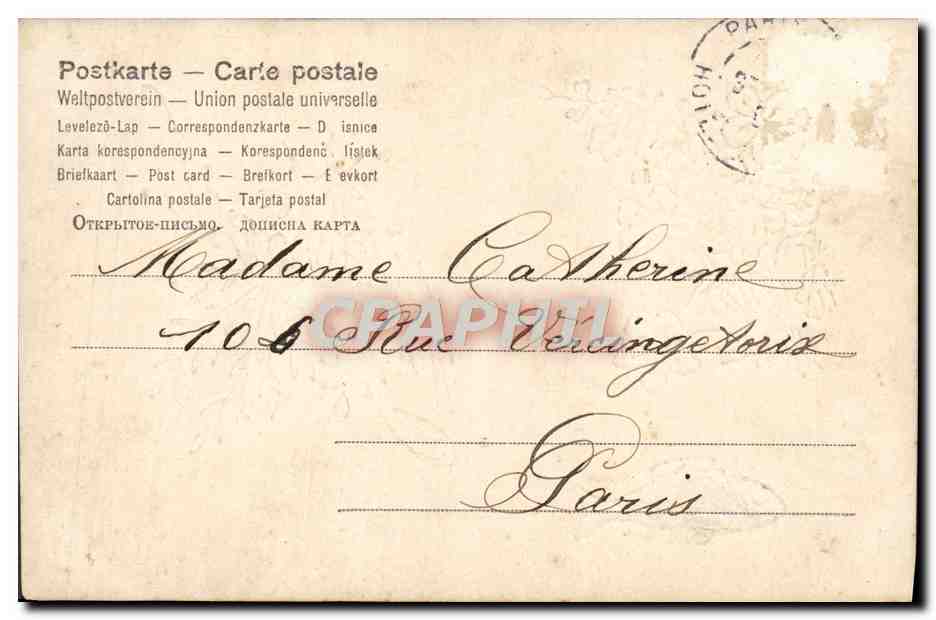 PARIS
Postkarte — Carte postale
Weltpostverein — Union postale universelle
Levelezö-Lap — Correspondenzkarte — D isnice
Karta korespondencyjna — Korespondenč lístek
Briefkaart — Post card — Brefkort — B evkort
Cartolina postale — Tarjeta postal
Открытое-письмо. дописна карта
Madame Catherine
106 Rue Vercingetorix
CPAPHIL
Paris